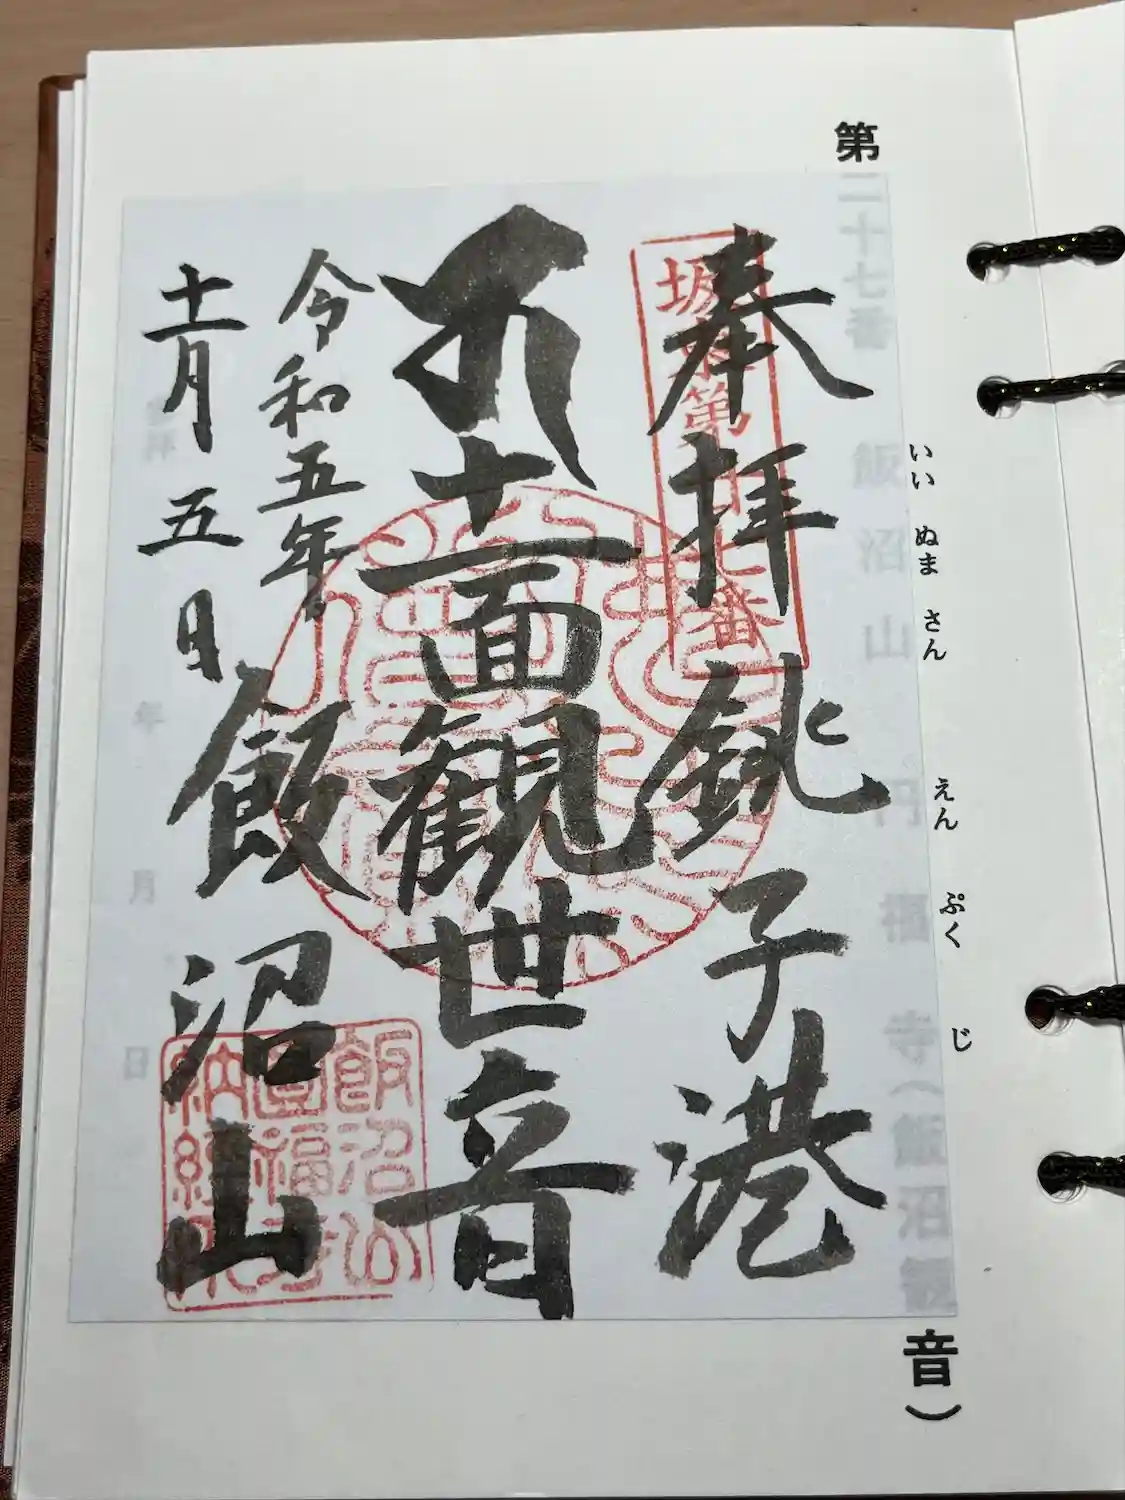 第二十七番 飯沼山 円福寺（飯沼観音）
いい ぬま さん えん ぷく じ
奉拝 銚子港
坂東第二十七番
十一面観世音
令和五年
十一月五日
飯沼山
飯沼山
圓福寺
納経印
年 月 日